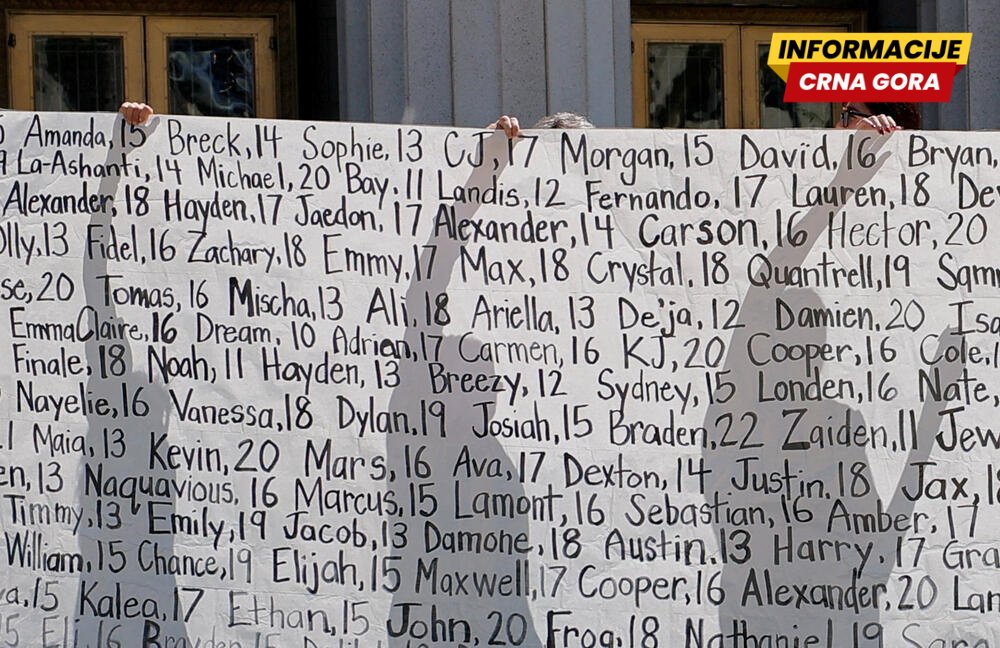 INFORMACIJE
CRNA GORA
Amanda, 15 Breck, 14 Sophie, 13 CJ, 17 Morgan, 15 David, 16 Bryan,
La-Ashanti, 14 Michael, 20 Bay, 11 Landis, 12 Fernando, 17 Lauren, 18
Alexander, 18 Hayden, 17 Jaedon, 17 Alexander, 14 Carson, 16 Hector, 20
olly, 13 Fidel, 16 Zachary, 18 Emmy, 17 Max, 18 Crystal, 18 Quantrell, 19
se, 20 Tomas, 16 Mischa, 13 Ali, 18 Ariella, 13 De'ja, 12 Damien, 20
EmmaClaire, 16 Dream, 10 Adrian, 17 Carmen, 16 KJ, 20 Cooper, 16 Cole,
Finale, 18 Noah, 11 Hayden, 13 Breezy, 12 Sydney, 15 Londen, 16 Nate,
Nayelie, 16 Vanessa, 18 Dylan, 19 Josiah, 15 Braden, 22 Zaiden, 11 Jew
Maia, 13 Kevin, 20 Mars, 16 Ava, 17 Dexton, 14 Justin, 18 Jax,
en, 13 Naquavious, 16 Marcus, 15 Lamont, 16 Sebastian, 16 Amber, 17
Timmy, 13 Emily, 19 Jacob, 13 Damone, 18 Austin, 13 Harry, 17 Gra
William, 15 Chance, 19 Elijah, 15 Maxwell, 17 Cooper, 16 Alexander, 20 Lan
a, 15 Kalea, 17 Ethan, 15 John, 20 Frog, 18 Nathaniel, 19
Eli, 16 Brayden, 15